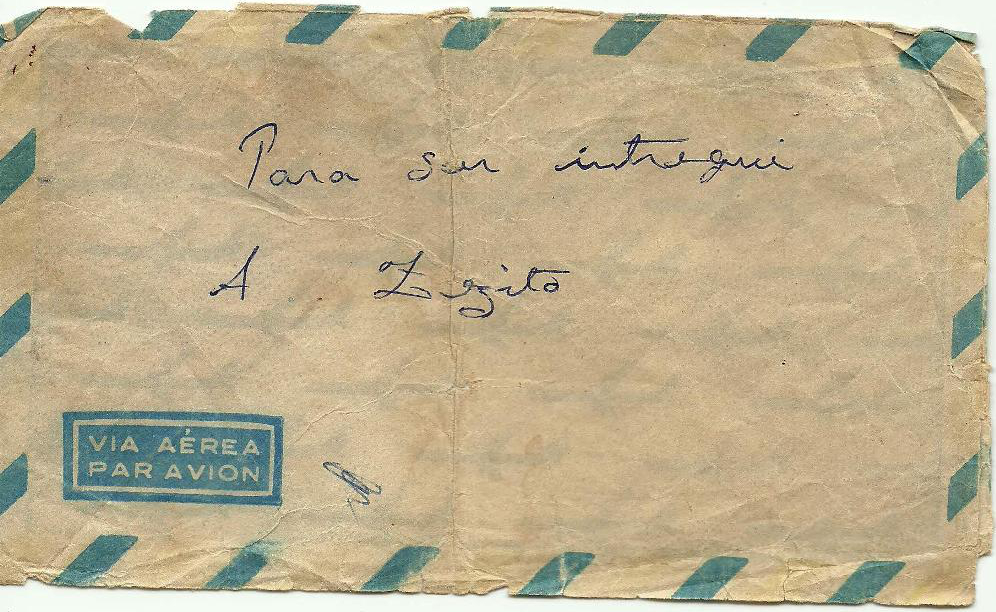 Para ser intregui
A Zezito
VIA AÉREA
PAR AVION